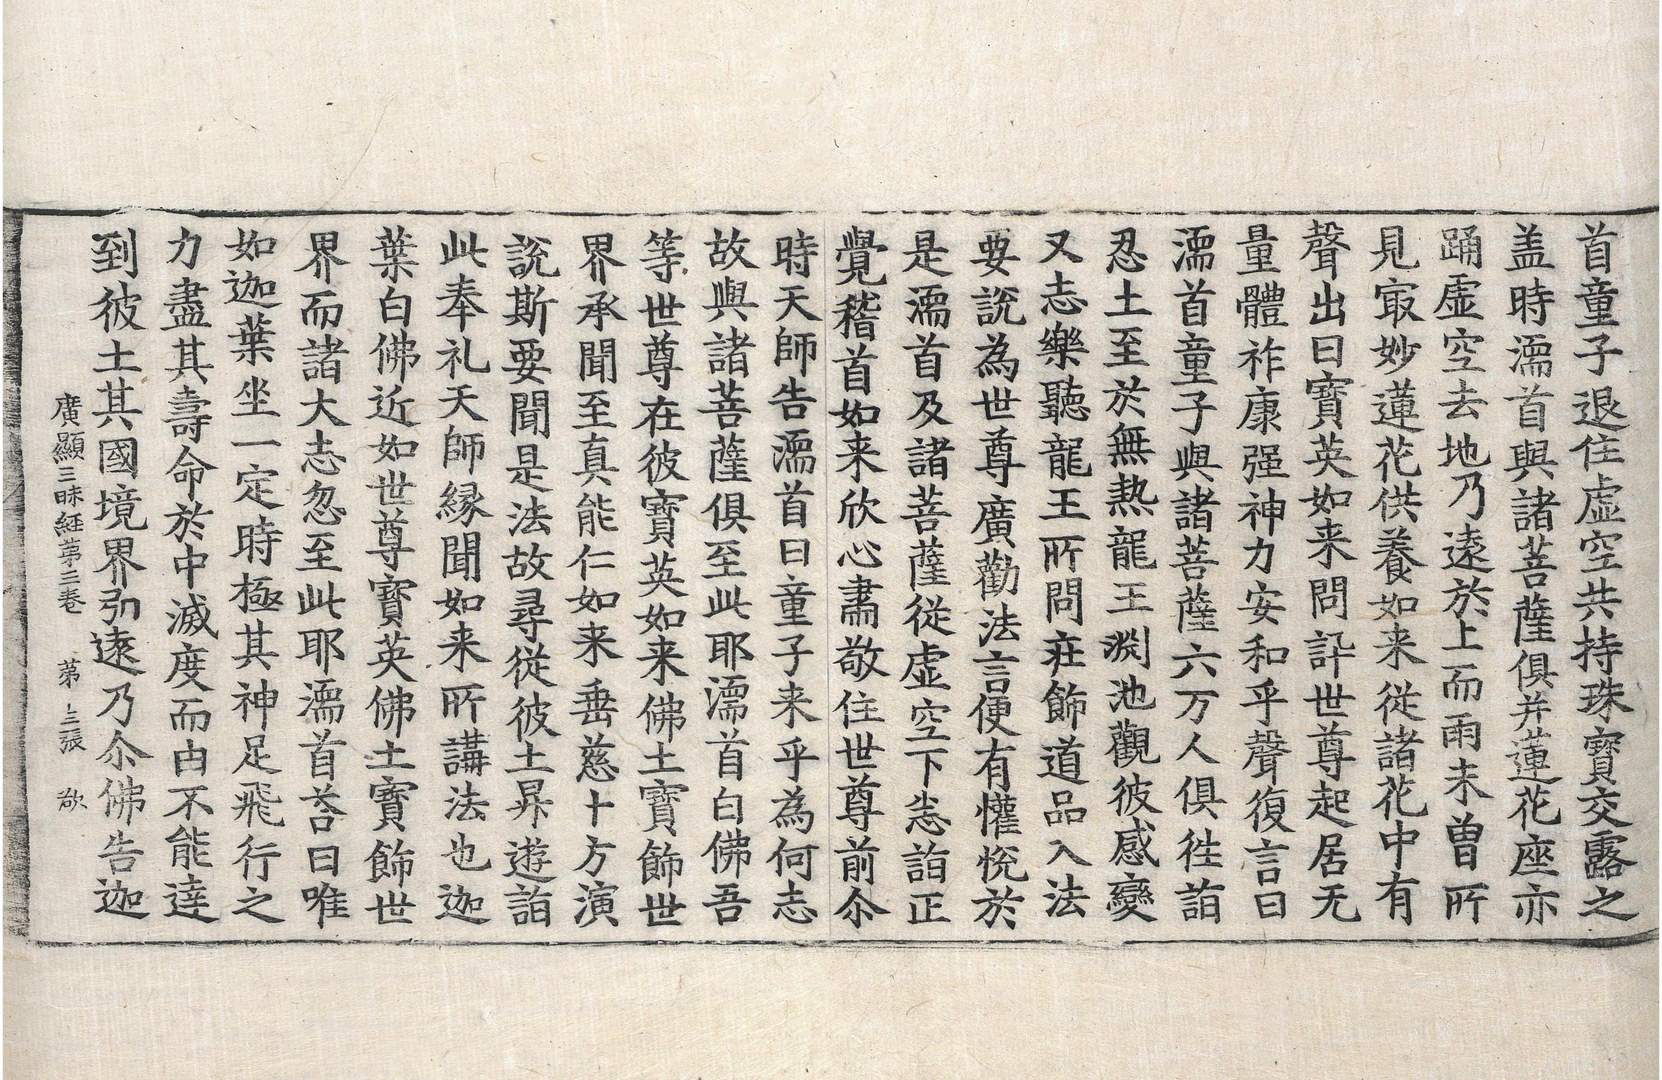 首童子退住虛空共持珠寶交露之
盖時濡首與諸菩薩俱并蓮花座亦
踊虛空去地乃遠於上而雨未曾所
見㝡妙蓮花供養如来從諸花中有
聲出曰寶英如来問訊世尊起居无
量體祚康强神力安和乎聲復言曰
濡首童子與諸菩薩六万人俱徃詣
忍土至於無热龍王渊池觀彼感變
又志樂聽龍王所問莊飾道品入法
要說為世尊廣勸法言便有懽悅於
是濡首及諸菩薩從虛空下志詣正
覺稽首如来欣心肅敬住世尊前尒
時天師告濡首曰童子来乎為何志
故與諸菩薩俱至此耶濡首白佛吾
等世尊在彼寶英如来佛土寶飾世
界承聞至真能仁如来垂慈十方演
說斯要聞是法故尋從彼土昇遊詣
此奉礼天師緣聞如来所講法也迦
葉白佛近如世尊寶英佛土寶飾世
界而諸大志忽至此耶濡首荅曰唯
如迦葉坐一定時極其神足飛行之
力盡其壽命於中滅度而由不能達
到彼土其國境界弘遠乃尒佛告迦
廣顯三昧經第三卷　第三張　欲